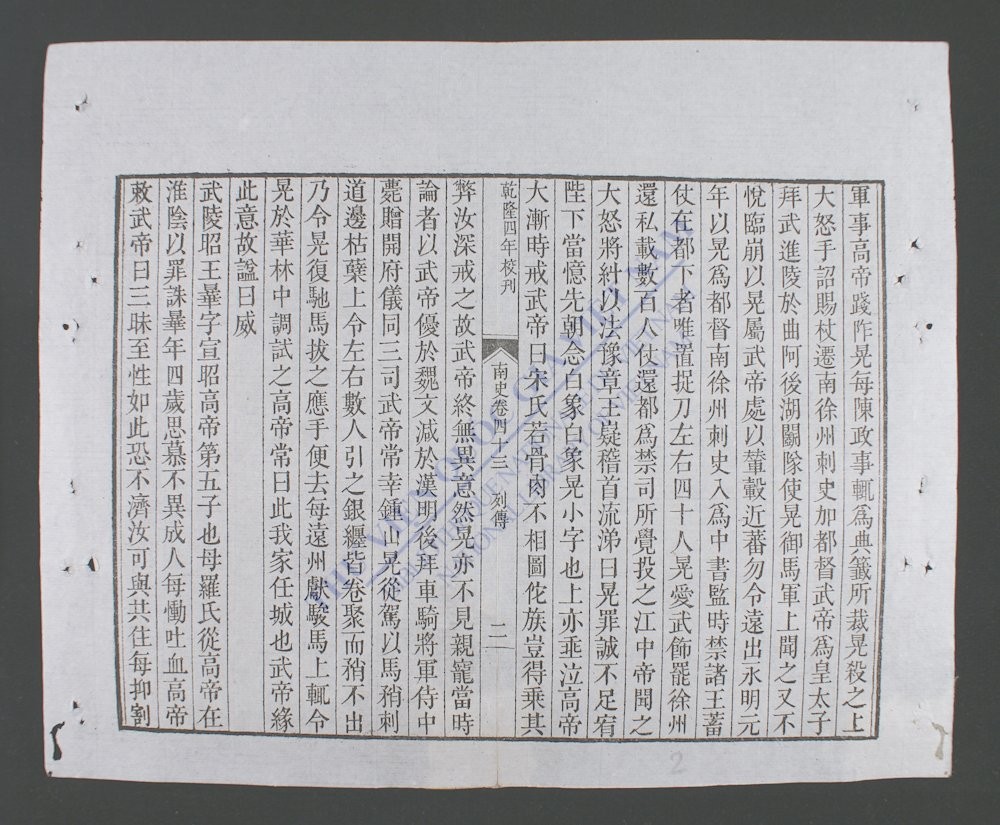 軍事高帝踐阼晃每陳政事輒爲典籤所裁晃殺之上
大怒手詔賜杖遷南徐州刺史加都督武帝爲皇太子
拜武進陵於曲阿後湖鬭隊使晃御馬軍上聞之又不
悅臨崩以晃屬武帝處以輦轂近蕃勿令遠出永明元
年以晃爲都督南徐州刺史入爲中書監時禁諸王蓄
仗在都下者唯置捉刀左右四十人晃愛武飾罷徐州
還私載數百人仗還都爲禁司所覺投之江中帝聞之
大怒將糾以法豫章王嶷稽首流涕曰晃罪誠不足宥
陛下當憶先朝念白象白象晃小字也上亦垂泣高帝
大漸時戒武帝曰宋氏若骨肉不相圖佗族豈得乗其
乾隆四年校刊
南史卷四十三 列傳 二
弊汝深戒之故武帝終無異意然晃亦不見親寵當時
論者以武帝優於魏文減於漢明後拜車騎將軍侍中
薨贈開府儀同三司武帝常幸鍾山晃從駕以馬矟刺
道邊枯蘖上令左右數人引之銀纏皆卷聚而矟不出
乃令晃復馳馬拔之應手便去每遠州獻駿馬上輒令
晃於華林中調試之高帝常曰此我家任城也武帝緣
此意故諡曰威
武陵昭王曅字宣昭高帝第五子也母羅氏從高帝在
淮陰以罪誅曅年四歲思慕不異成人每慟吐血高帝
敕武帝曰三昧至性如此恐不濟汝可與共住每抑割
2